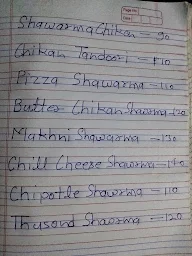 Shawarma Chikan - 90
Chikan Tandoori - 110
Pizza Shawarma - 110
Butter Chikan Shawrma - 120
Makhni Shawarma - 130
Chill Cheese Shawrma - 140
Chipotle Shawrma - 110
Thusond Shawrma - 120